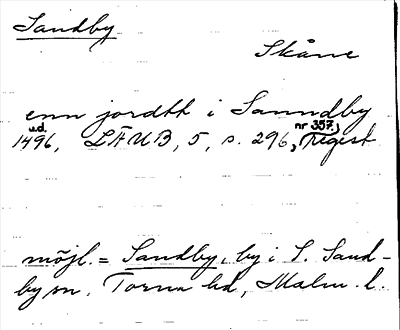 Sandby
Skåne
enn jordth i Sanndby
u.d. nr 357.
1496, LÄUB, 5, s. 296, Regest
möjl. = Sandby, by i S. Sand-
by sn, Torna hd, Malm. l.